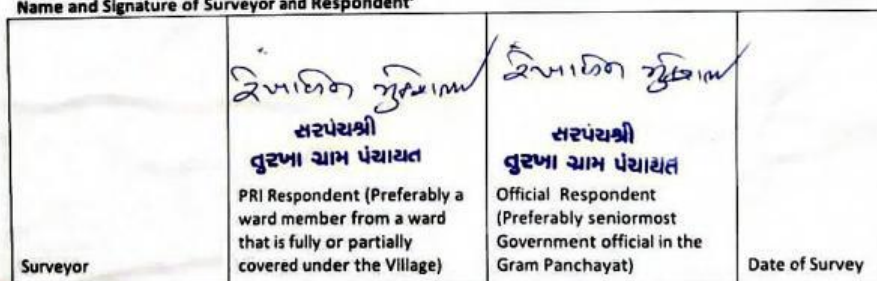 Name and Signature of Surveyor and Respondent
સરપંચશ્રી
તુરખા ગ્રામ પંચાયત
સરપંચશ્રી
તુરખા ગ્રામ પંચાયત
Surveyor
PRI Respondent (Preferably a
ward member from a ward
that is fully or partially
covered under the Village)
Official Respondent
(Preferably seniormost
Government official in the
Gram Panchayat)
Date of Survey